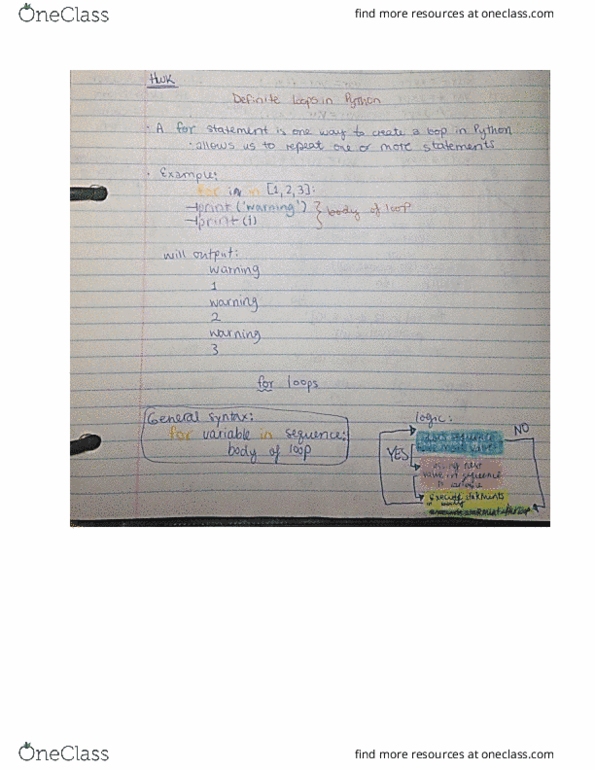 OneClass
find more resources at oneclass.com
HWK
Definite Loops in Python
· A for statement is one way to create a loop in Python
· allows us to repeat one or more statements
· Example:
for i in [1,2,3]:
print ('warning') } body of loop
print (i)
will output:
warning
1
warning
2
warning
3
for loops
General syntax:
for variable in sequence:
body of loop
logic:
NO
does sequence
have more values
YES
assign next
value in sequence
to variable
execute statements
in body
OneClass
find more resources at oneclass.com